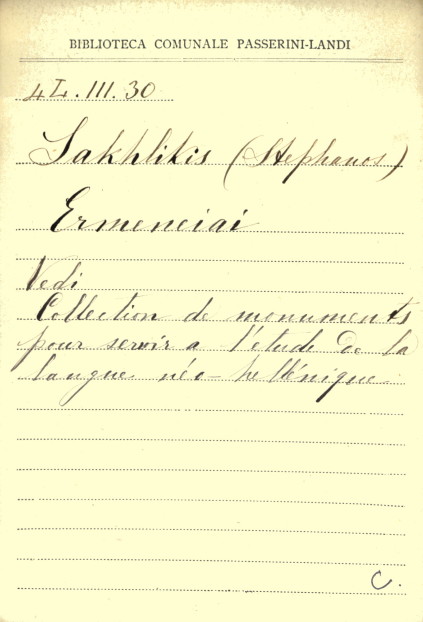 BIBLIOTECA COMUNALE PASSERINI-LANDI
4L.III.30
Sakhlikis (Stephanos)
Ermeneiai
Vedi
Collection de monuments
pour servir a l'étude de la
langue néo-hellénique.
C.